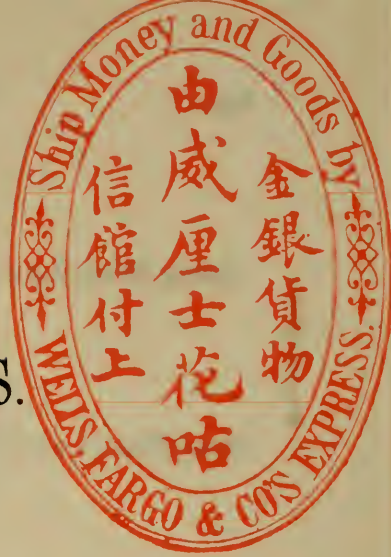 Ship Money and Goods by
金銀貨物
由威厘士花咕
信館付上
WELLS, FARGO & CO'S EXPRESS.
S.